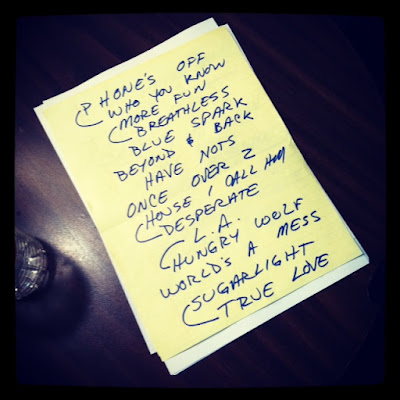 PHONE'S OFF
WHO YOU KNOW
MORE FUN
BREATHLESS
BLUE SPARK
BEYOND & BACK
HAVE NOTS
ONCE OVER 2
HOUSE I CALL HOME
DESPERATE
L.A.
HUNGRY WOLF
WORLD'S A MESS
SUGARLIGHT
TRUE LOVE